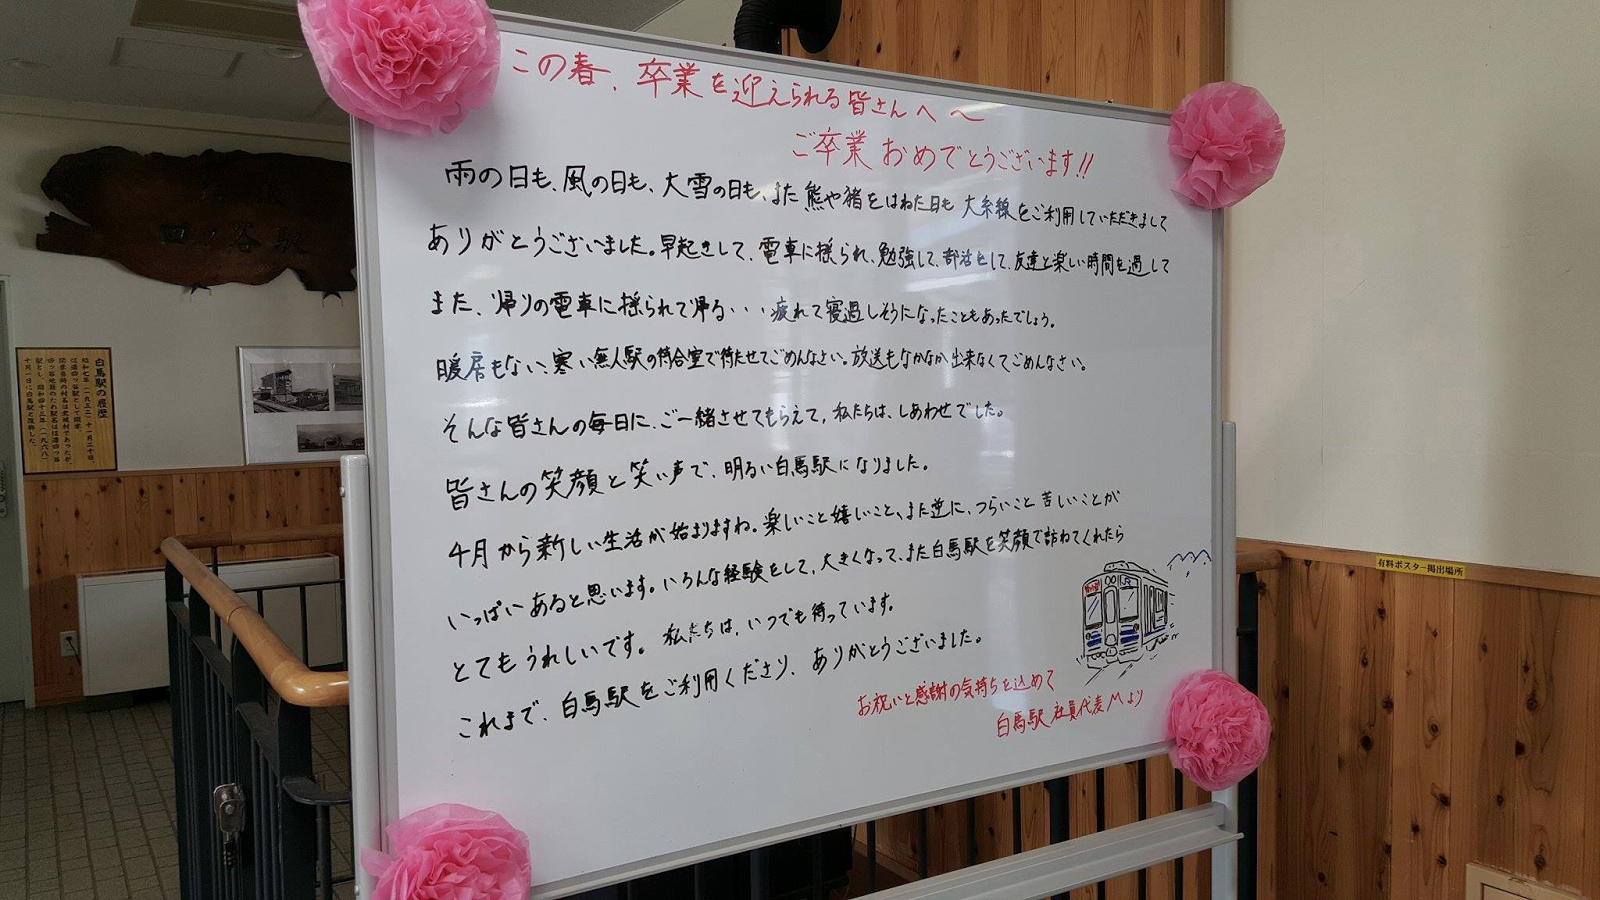 この春、卒業を迎えられる皆さんへ～
ご卒業おめでとうございます!!
雨の日も、風の日も、大雪の日も、また熊や猪をはねた日も大糸線をご利用していただきまして
ありがとうございました。早起きして、電車に揺られ、勉強して、部活をして、友達と楽しい時間を過して
また、帰りの電車に揺られて帰る・・・疲れて寝過しそうになったこともあったでしょう。
暖房もない、寒い無人駅の待合室で待たせてごめんなさい。放送もなかなか出来なくてごめんなさい。
そんな皆さんの毎日に、ご一緒させてもらえて、私たちは、しあわせでした。
皆さんの笑顔と笑い声で、明るい白馬駅になりました。
4月から新しい生活が始まりますね。楽しいこと嬉しいこと、また逆に、つらいこと苦しいことが
いっぱいあると思います。いろんな経験をして、大きくなって、また白馬駅を笑顔で訪ねてくれたら
とてもうれしいです。私たちは、いつでも待っています。
これまで、白馬駅をご利用くださり、ありがとうございました。
お祝いと感謝の気持ちを込めて
白馬駅 社員代表Mより
四ツ谷駅
白馬駅の履歴
昭和七年（一九三二）十一月二十日、
信濃四ッ谷駅として開業。
開業当時の村名は北城村であったが、
四ッ谷地籍のため駅名は信濃四ッ谷
駅とし、昭和四十三年（一九六八）
十月一日に白馬駅と改称した。
有料ポスター掲出場所